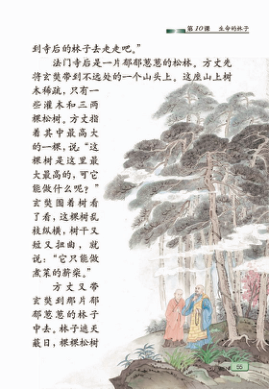 第10课 生命的林子
到寺后的林子去走走吧。”
法门寺后是一片郁郁葱葱的松林。方丈先
将玄奘带到不远处的一个山头上。这座山上树
木稀疏，只有一
些灌木和三两
棵松树。方丈指
着其中最高大
的一棵，说：“这
棵树是这里最
大最高的，可它
能做什么呢？”
玄奘围着树看
了看，这棵树乱
枝纵横，树干又
短又扭曲，就
说：“它只能做
煮粥的薪柴。”
方丈又带
玄奘到那片郁
郁葱葱的林子
中去。林子遮天
蔽日，棵棵松树
55